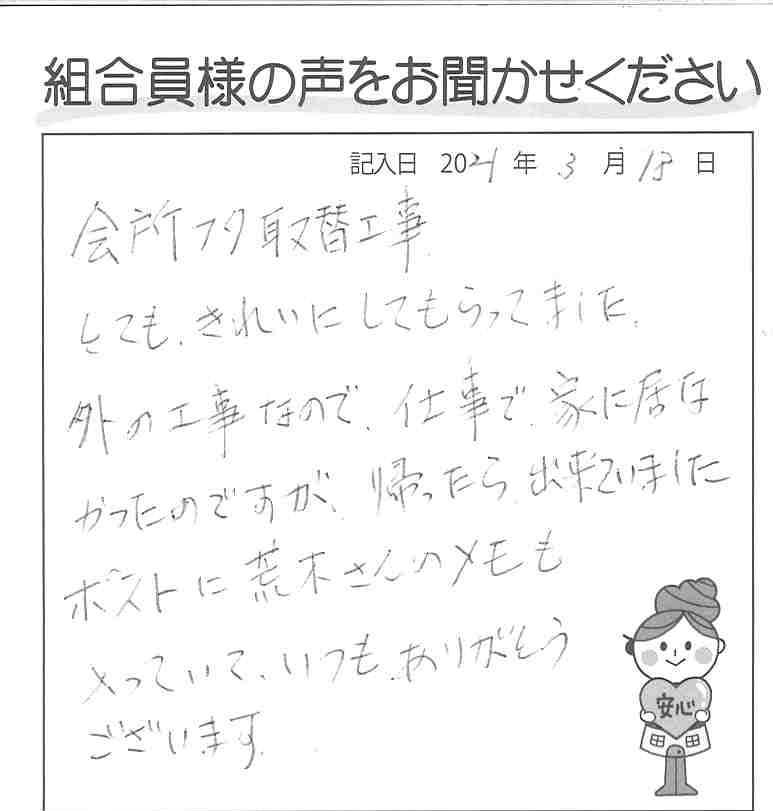 組合員様の声をお聞かせください
記入日 2021年 3月 18日
会所フタ取替工事
とても、きれいにしてもらってました。
外の工事なので、仕事で、家に居な
かったのですが、帰ったら、出来ていました
ポストに荒木さんのメモも
入っていて、いつも、ありがとう
ございます。
安心